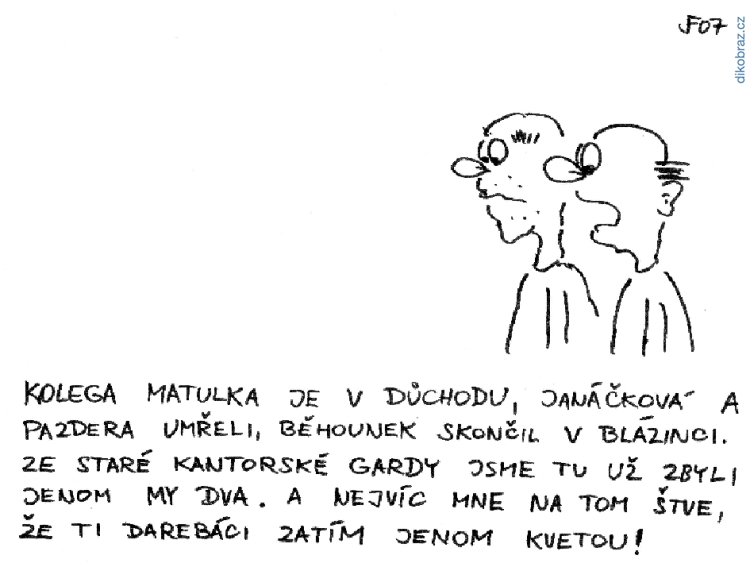 JF07
dikobraz.cz
KOLEGA MATULKA JE V DŮCHODU, JANÁČKOVÁ A
PAZDERA UMŘELI, BĚHOUNEK SKONČIL V BLÁZINCI.
ZE STARÉ KANTORSKÉ GARDY JSME TU UŽ ZBYLI
JENOM MY DVA. A NEJVÍC MNE NA TOM ŠTVE,
ŽE TI DAREBÁCI ZATÍM JENOM KVETOU!